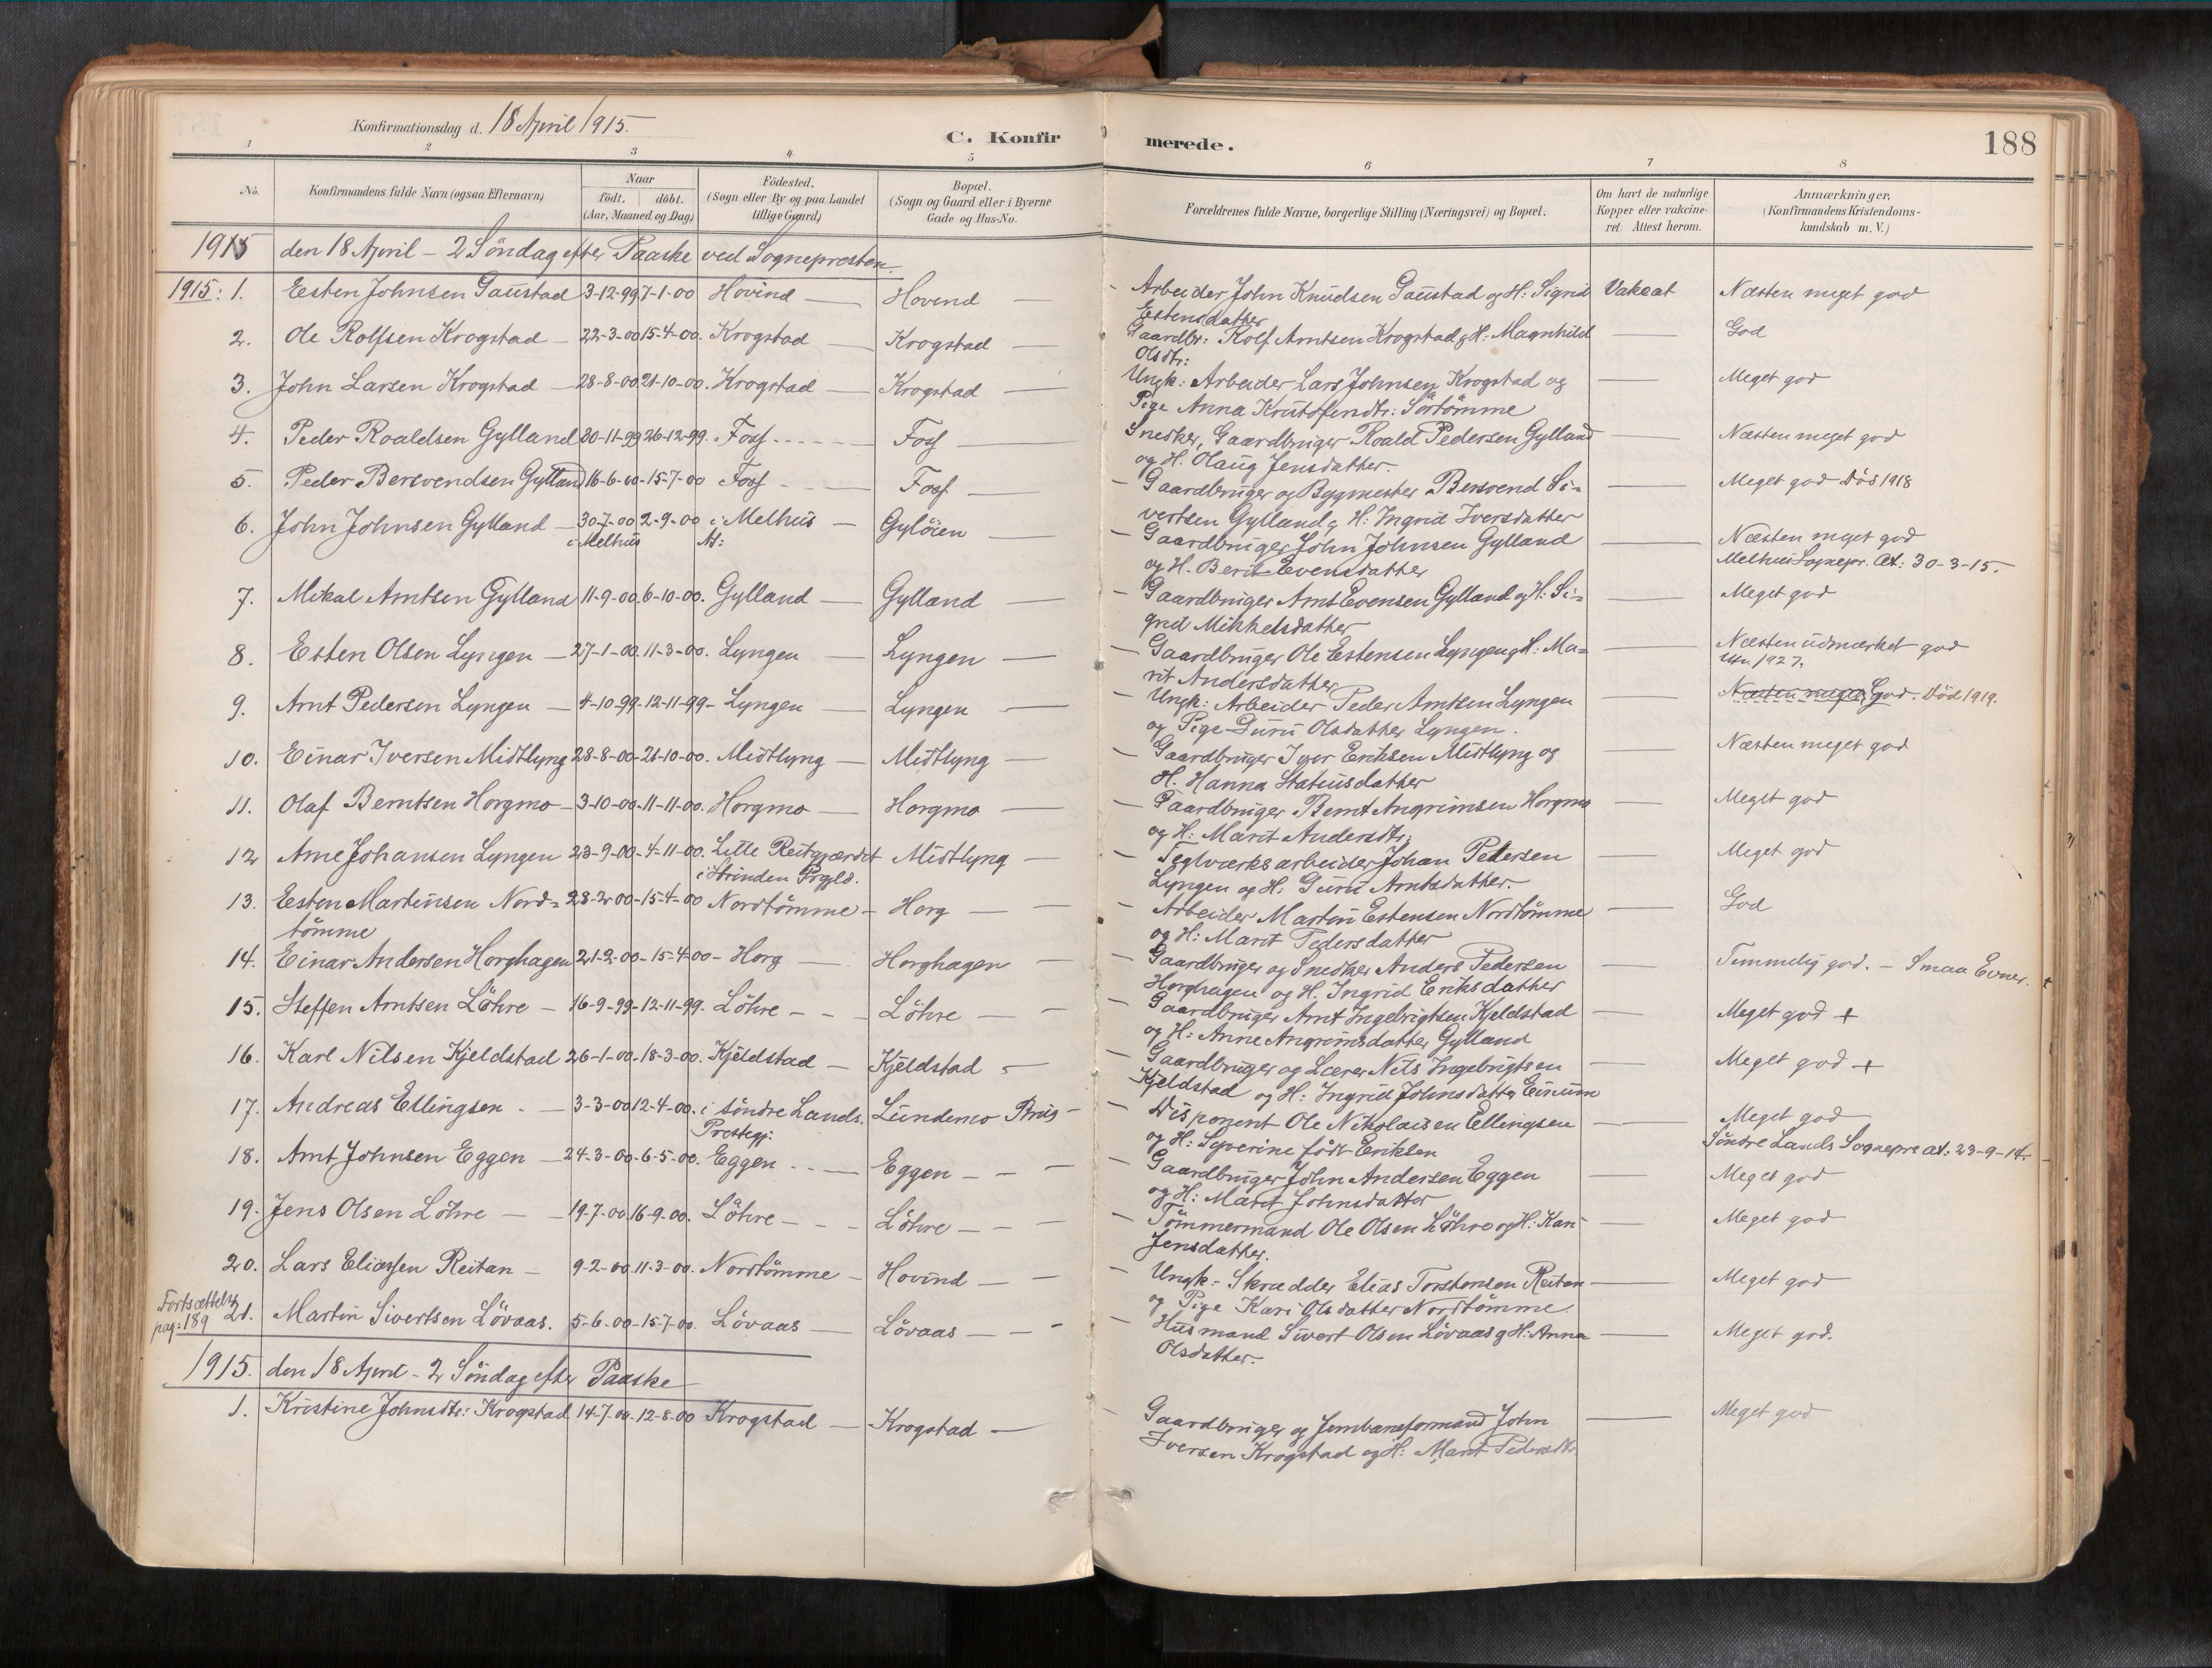 Konfirmationsdag d. 18 April 1915.
C. Konfirmerede.
188
1 2 3 4 5 6 7 8
No.
Konfirmandens fulde Navn (ogsaa Efternavn)
Naar
födt. döbt.
(Aar, Maaned og Dag)
Födested.
(Sogn eller By og paa Landet
tillige Gaard)
Bopæl.
(Sogn og Gaard eller i Byerne
Gade og Hus-No.
Forældrenes fulde Navne, borgerlige Stilling (Næringsvei) og Bopæl.
Om havt de naturlige
Kopper eller vakcine-
ret. Attest herom.
Anmærkninger.
(Konfirmandens Kristendoms-
kundskab m. V.)
1915 den 18 April - 2 Söndag efter Paaske ved Sognepresten.
1915: 1. Esten Johnsen Gaustad 3-12-99 7-1-00 Hovind — Hovind — Arbeider John Knudsen Gaustad og H: Sigrid Vakcat Næsten meget god
Estensdatter
2. Ole Rolfsen Krogstad — 22-3-00 15-4-00. Krogstad — Krogstad — Gaardbr: Rolf Arntsen Krogstad og H. Magnhild — God
Olsdtr:
3. John Larsen Krogstad — 28-8-00 21-10-00. Krogstad — Krogstad — Ungk: Arbeider Lars Johnsen Krogstad og — Meget god
Pige Anna Kristofersdtr: Sörtömme
4. Peder Roaldsen Gylland 30-11-99 26-12-99. Foss — Foss — Snedker, Gaardbruger Roald Pedersen Gylland — Næsten meget god
og H. Olaug Jensdatter.
5. Peder Bersvendsen Gylland 16-6-00 - 15-7-00 Foss — Foss — Gaardbruger og Bygmester Bersvend Si- — Meget god Död 1918
vertsen Gylland og H: Ingrid Iversdatter
6. John Johnsen Gylland — 30-7-00 2-9-00 i Melhus — Gylöien — Gaardbruger John Johnsen Gylland — Næsten meget god
i Melhus At:
og H. Berit Evensdatter Melhus Sognepr. At: 30-3-15.
7. Mikal Arntsen Gylland 11-9-00 6-10-00. Gylland — Gylland — Gaardbruger Arnt Evensen Gylland og H: Si- — Meget god
grid Mikkelsdatter
8. Esten Olsen Lyngen — 27-1-00. 11-3-00. Lyngen — Lyngen — Gaardbruger Ole Estensen Lyngen og H: Ma- — Næsten udmærket god
rit Andersdatter 1927.
9. Arnt Pedersen Lyngen — 4-10-99 - 12-11-99 - Lyngen — Lyngen — Ungk: Arbeider Peder Arntsen Lyngen — Næsten meget God. Död 1919.
og Pige Guru Olsdatter Lyngen.
10. Einar Iversen Midtlyng 28-8-00 - 21-10-00. Midtlyng — Midtlyng — Gaardbruger Iver Eriksen Midtlyng og — Næsten meget god
H. Hanna Statiusdatter
11. Olaf Berntsen Horgmo — 3-10-00 - 11-11-00. Horgmo — Horgmo — Gaardbruger Bernt Angrimsen Horgmo — Meget god
og H: Marit Andersdtr;
12 Arne Johansen Lyngen 23-9-00 - 4-11-00. Lille Reitgjærdet Midtlyng — Teglværksarbeider Johan Petersen — Meget god
i Strinden Prgjld.
Lyngen og H: Guru Arntsdatter.
13. Esten Martinsen Nord- 28-2-00 - 15-4-00 Nordtömme — Horg — Arbeider Martin Estensen Nordtömme — God
tömme
og H: Marit Pedersdatter
14. Einar Andersen Horghagen 21-2-00 - 15-4-00 - Horg — Horghagen — Gaardbruger og Snedker Anders Pedersen — Temmelig god. - Smaa Evner.
Horghagen og H. Ingrid Eriksdatter
15. Steffen Arntsen Löhre — 16-9-99 - 12-11-99. Löhre — Löhre — Gaardbruger Arnt Ingebrigtsen Kjeldstad — Meget god +
og H: Anne Angrimsdatter Gylland
16. Karl Nilsen Kjeldstad 26-1-00 - 18-3-00. Kjeldstad — Kjeldstad — Gaardbruger og Lærer Nils Ingebrigtsen — Meget god +
Kjeldstad og H: Ingrid Johnsdatter Einum
17. Andreas Ellingsen — 3-3-00 12-4-00. i söndre Lands. Lundemo Brug — Disponent Ole Nikolaisen Ellingsen — Meget god
Prestegj:
og H: Syverine født Eriksen Söndre Lands Sognepr at: 23-9-14.
18. Arnt Johnsen Eggen — 24-3-00 - 6-5-00. Eggen — Eggen — Gaardbruger John Andersen Eggen — Meget god
og H: Marit Johnsdatter
19. Jens Olsen Löhre — 19-7-00 16-9-00. Löhre — Löhre — Tömmermand Ole Olsen Löhre og H: Kari — Meget god
Jensdatter.
20. Lars Eliassen Reitan — 9-2-00 11-3-00. Nordtömme — Hovind — Ungk: Skrædder Elias Torstensen Reitan — Meget god
og Pige Kari Olsdatter Nordtömme.
Fortsættelse
pag: 189
21. Martin Sivertsen Lövaas. 5-6-00 - 15-7-00. Lövaas — Lövaas — Husmand Sivert Olsen Lövaas og H: Anna — Meget god.
Olsdatter.
1915. den 18 April - 2 Söndag efter Paaske
1. Kristine Johnsdtr: Krogstad 14-7-00 - 12-8-00 Krogstad — Krogstad — Gaardbruger og Jernbaneformand John — Meget god
Iversen Krogstad og H: Marit Pedersdtr